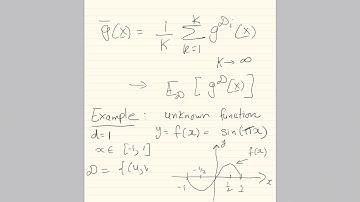 ḡ(x) = 1/K Σ_{k=1}^{K} g^{D_i}(x)
K → ∞
→ E_D [g^D(x)]
Example: unknown function
d=1 y = f(x) = sin(πx)
x ∈ [-1, 1]
y f(x)
-1 -1/2 1/2 1 x
D = {(